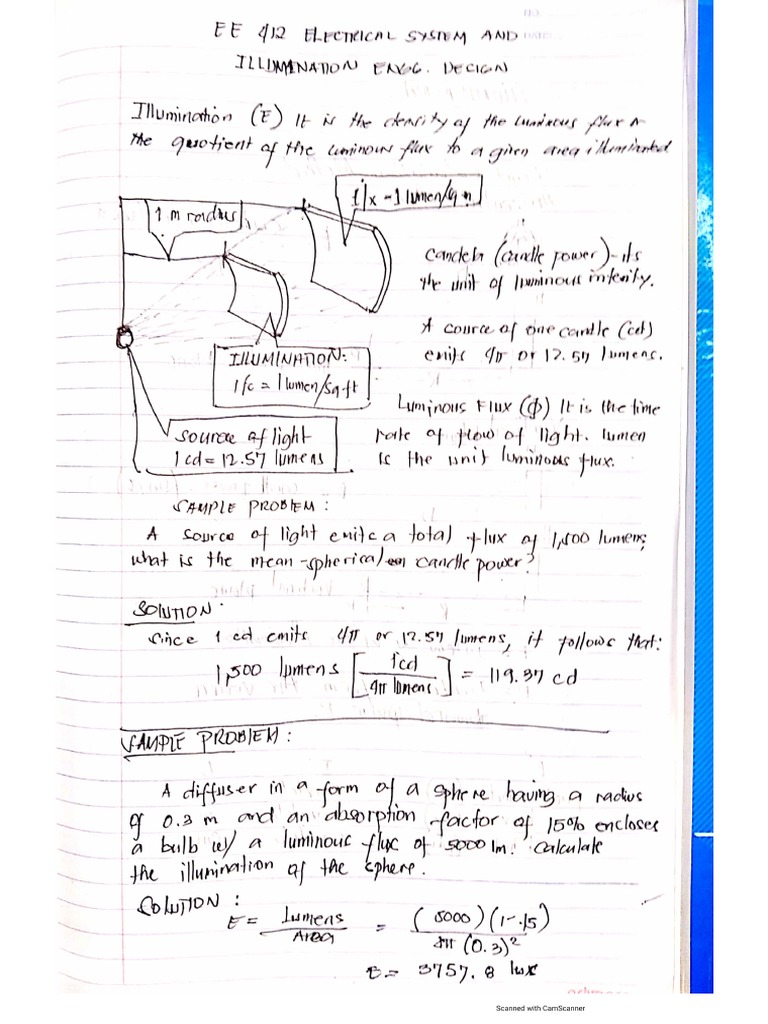 EE 412 ELECTRICAL SYSTEM AND
ILLUMINATION ENGG. DECIGN
Illumination (E) It is the density of the luminous flux or
the quotient of the luminous flux to a given area illuminated
1 lx - 1 lumen/sq.m
1 m radius
Candela (candle power) - its
the unit of luminous intensity.
A source of one candle (cd)
emits 4π or 12.57 lumens.
ILLUMINATION:
1 fc = 1 lumen/sq ft
Luminous Flux (ф) It is the time
rate of flow of light. lumen
is the unit luminous flux.
Source of light
1 cd = 12.57 lumens
SAMPLE PROBLEM:
A source of light emits a total flux of 1,500 lumens,
what is the mean-spherical candle power?
SOLUTION:
Since 1 cd emits 4π or 12.57 lumens, it follows that:
1,500 lumens [1cd / 4π lumens] = 119.37 cd
SAMPLE PROBLEM:
A diffuser in a form of a sphere having a radius
of 0.3 m and an absorption factor of 15% encloses
a bulb w/ a luminous flux of 5000 lm. Calculate
the illumination of the sphere.
SOLUTION:
E = Lumens / Area = (5000)(1-.15) / 4π (0.3)²
E = 3757.8 lux
Scanned with CamScanner